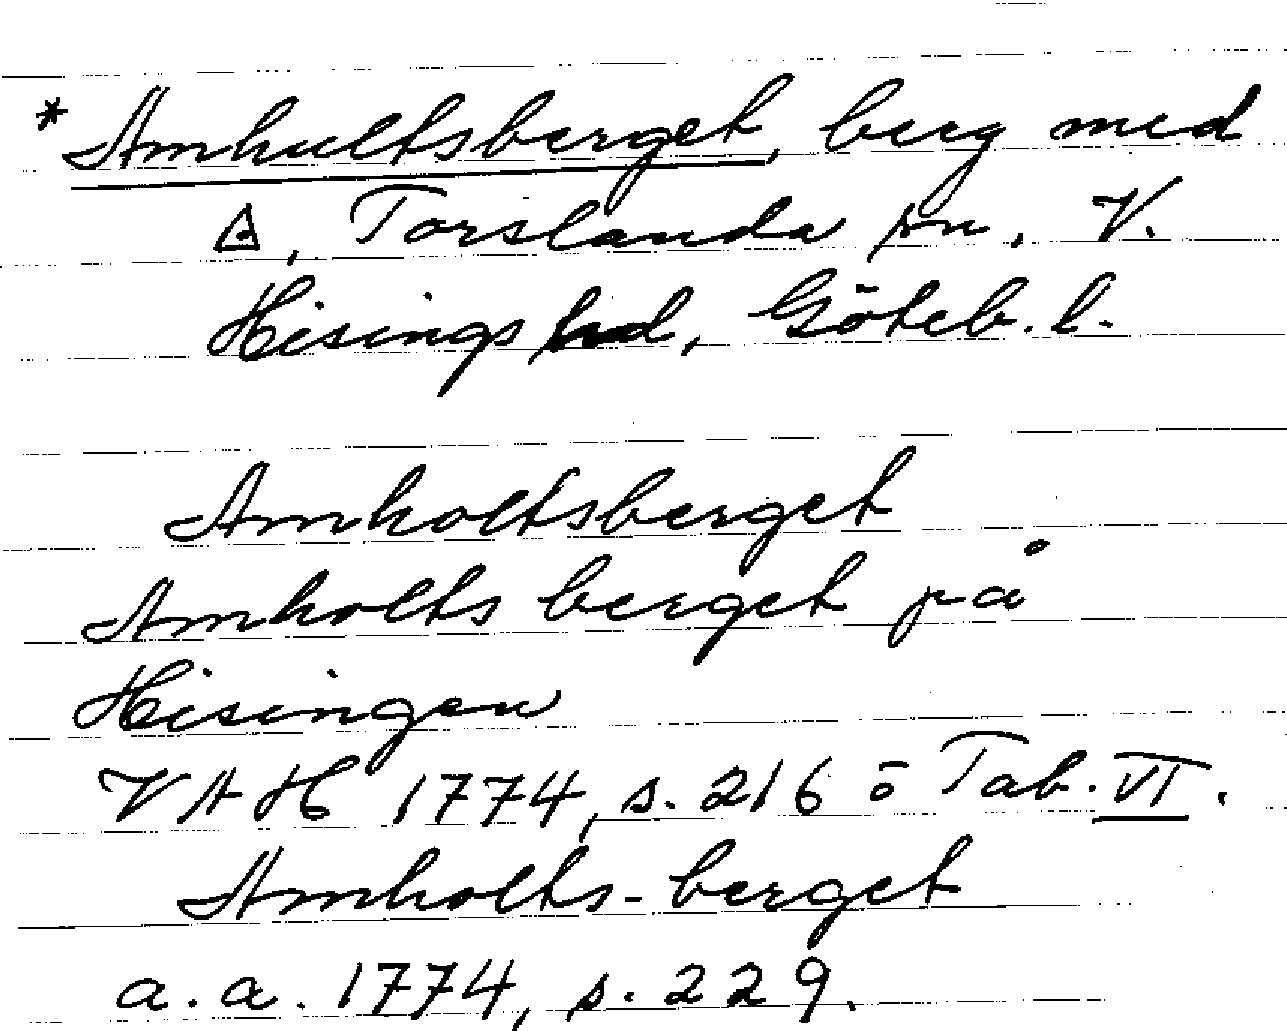 * Amhultsberget, berg med
△, Torslanda sn, V.
Hisings hd, Göteb. l.
Amholtsberget
Amholts berget på
Hisingen
VAH 1774, s. 216 o Tab. VI.
Amholts-berget
a. a. 1774, s. 229.